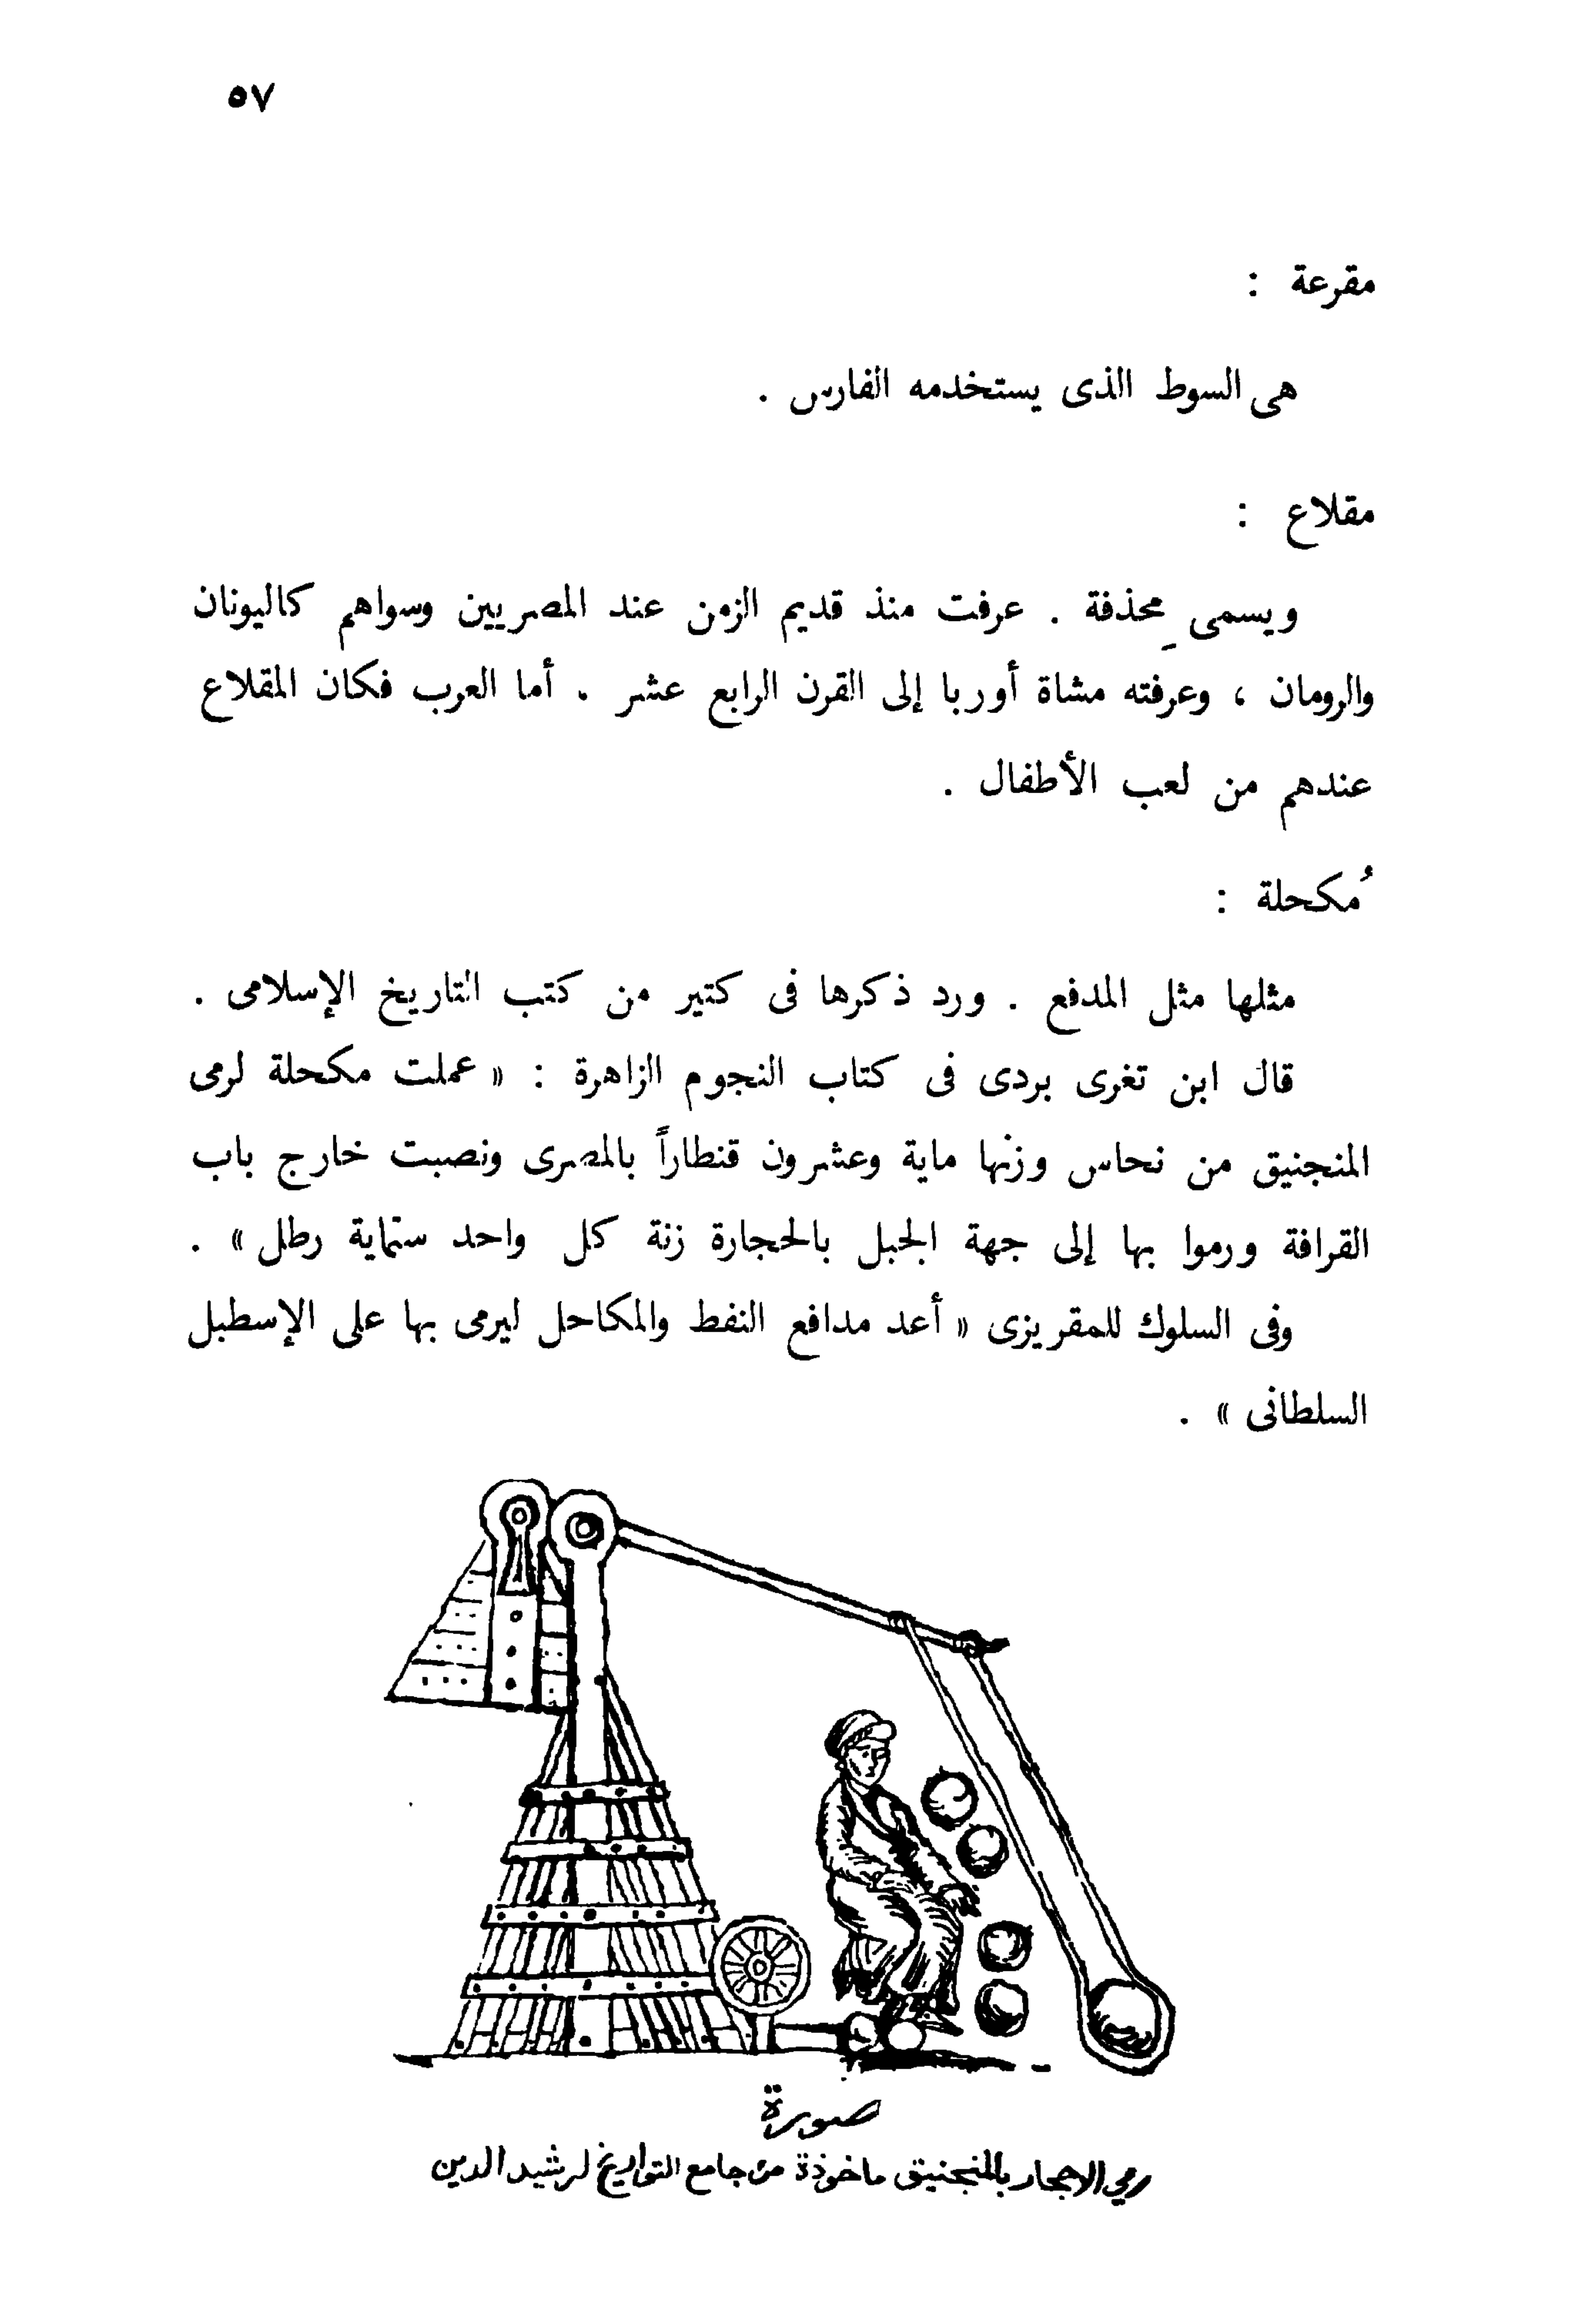 ٥٧
مقرعة :
هى السوط الذى يستخدمه الفارس .
مقلاع :
ويسمى مِحذفة . عرفت منذ قديم الزمن عند المصريين وسواهم كاليونان
والرومان ، وعرفته مشاة أوربا إلى القرن الرابع عشر . أما العرب فكان المقلاع
عندهم من لعب الأطفال .
مُكحلة :
مثلها مثل المدفع . ورد ذكرها فى كتير من كتب التاريخ الإسلامى .
قال ابن تغرى بردى فى كتاب النجوم الزاهرة : « عملت مكحلة لرمى
المنجنيق من نحاس وزنها ماية وعشرون قنطاراً بالمصرى ونصبت خارج باب
القرافة ورموا بها إلى جهة الجبل بالحجارة زنة كل واحد ستماية رطل » .
وفى السلوك للمقريزى « أعد مدافع النفط والمكاحل ليرمى بها على الإسطبل
السلطانى » .
صورة
رمي الاحجار بالمنجنيق ماخوذة من جامع التواريخ لرشيد الدين